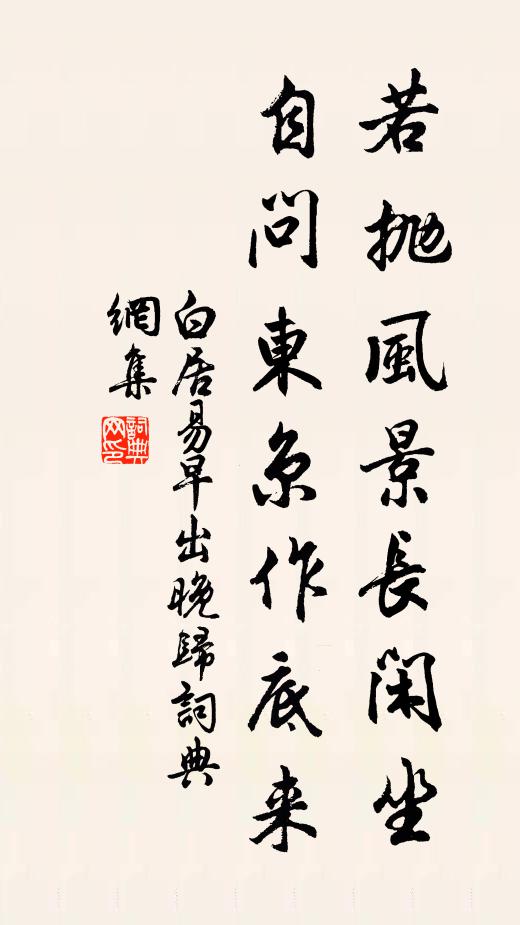 若抛風景長閑坐
自問東京作底来
白居易早出晚歸詞典
網集
詞典
网印